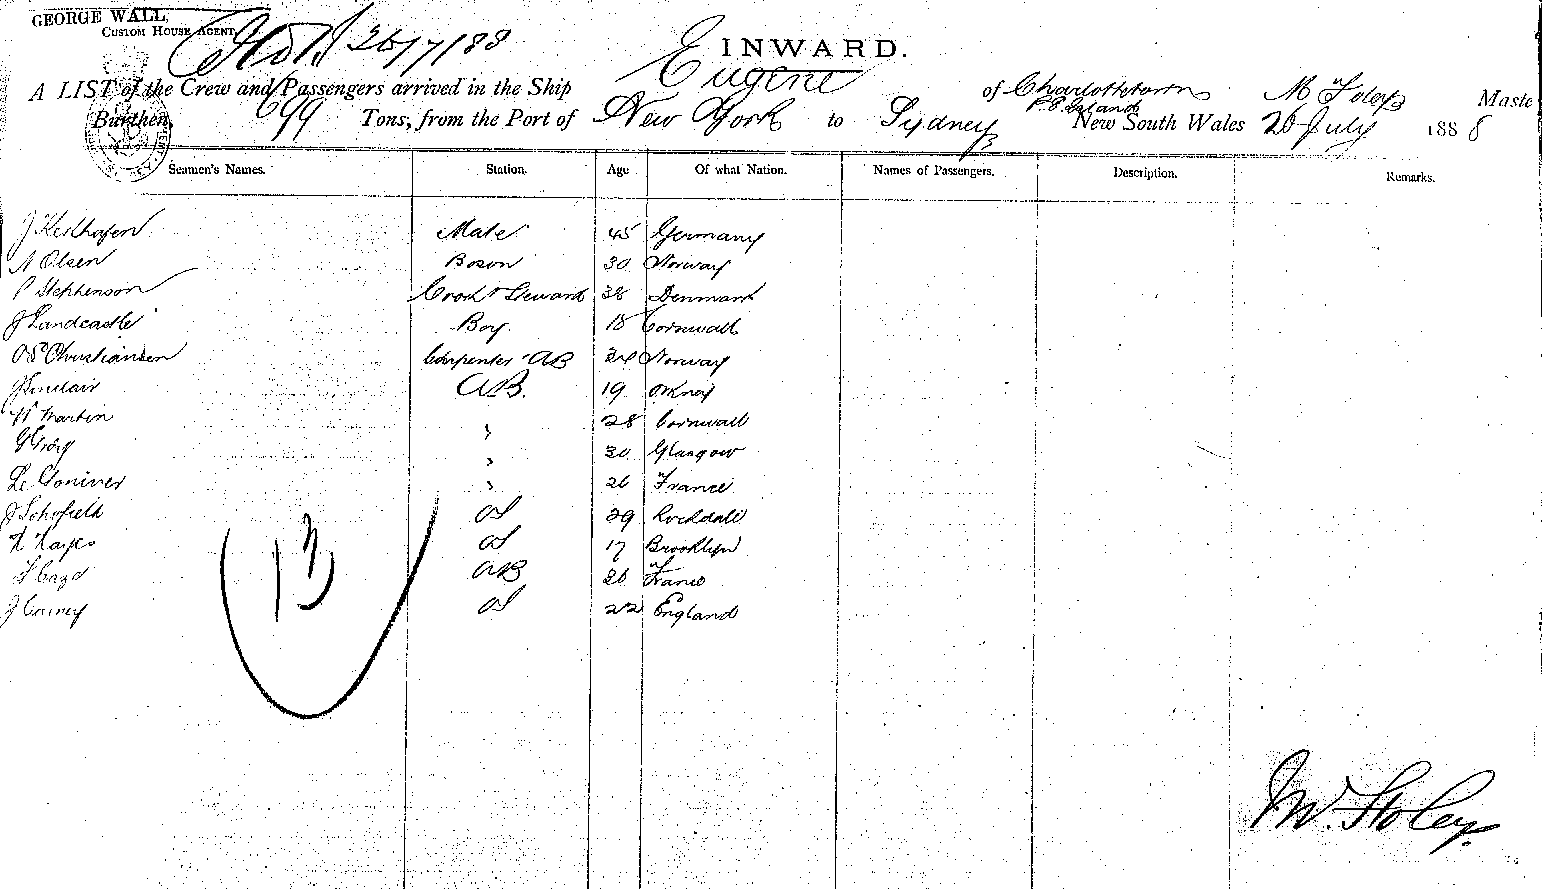 GEORGE WALL,
CUSTOM HOUSE AGENT,
26/7/88
INWARD.
A LIST of the Crew and Passengers arrived in the Ship Eugene of Charlottetown P. E. Island M Foley Maste
Burthen, 699 Tons, from the Port of New York to Sydney New South Wales 26 July 1888
Seamen's Names. Station. Age Of what Nation. Names of Passengers. Description. Remarks.
J Mate 45 Germany
N Olsen Boson 30 Norway
P Stephenson Cook & Steward 38 Denmark
J Landcastle Boy 18 Cornwall
Christiansen Carpenter AB 24 Norway
J Sinclair AB. 19 Orkney
W Martin " 28 Cornwall
G Gray " 30 Glasgow
" 26 France
J Schofield OS 29 Rochdall
OS 17 Brooklyn
AB 26 France
J OS 22 England
13
M. Foley.